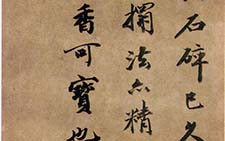 石碑已久
搨法亦精
香可寶也